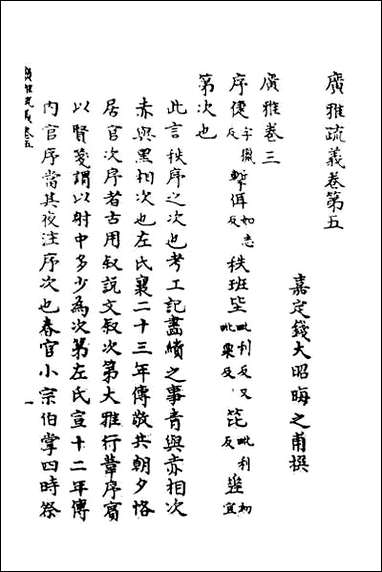 廣雅疏義卷第五
嘉定錢大昭晦之甫撰
廣雅卷三
序倢子獵反佴如志反秩班坒毗利反又毗栗反笓毗利反差初宜
第次也
此言秩序之次也考工記畫繢之事青與赤相次
赤與黑相次也左氏襄二十三年傳敬共朝夕恪
居官次序者古用叙說文叙次第大雅行葦序賓
以賢箋謂以射中多少為次第左氏宣十二年傳
內官序當其夜注序次也春官小宗伯掌四時祭
廣雅疏義卷五
一